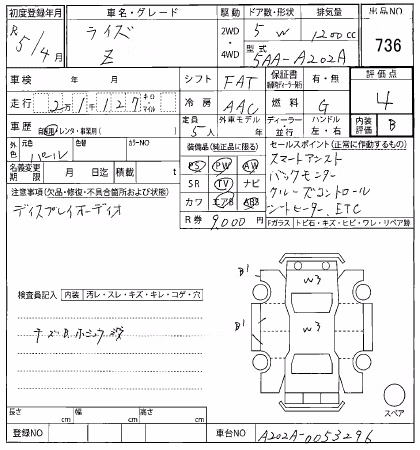 初度登録年月 車名・グレード 駆動 ドア数・形状 排気量 出品NO
R 5/4月 ライズ Z 2WD・4WD 5 W 1200cc 736
型式 5AA-A202A
車検 年 月 シフト FAT 保証書 有・無 評価点 4
走行 2万1千127 キロ・マイル 冷房 AAC 燃料 G
車歴 自家用・レンタ・事業用( ) 定員 5人 外車モデル 年 ディーラー・並行 ハンドル 左・右 内装評価 B
外色 元色 パール 色替 カラーNO
装備品(純正品に限る) セールスポイント(正常に作動するもの)
名義変更期限 月 日迄 積載 t
PS PW AW
SR TV ナビ
カワ エアB ABS
R券 9,000円
スマートアシスト
バックモニター
クルーズコントロール
シートヒーター、ETC
注意事項(欠品・修復・不具合箇所および状態)
ディスプレイオーディオ
Fガラス トビ石・キズ・ヒビ・ワレ・リペア跡
検査員記入 内装 汚レ・スレ・キズ・キレ・コゲ・穴
B' W3
B' W3
スペア
長さ cm 幅 cm 高さ cm
登録NO 車台NO A202A-0053296